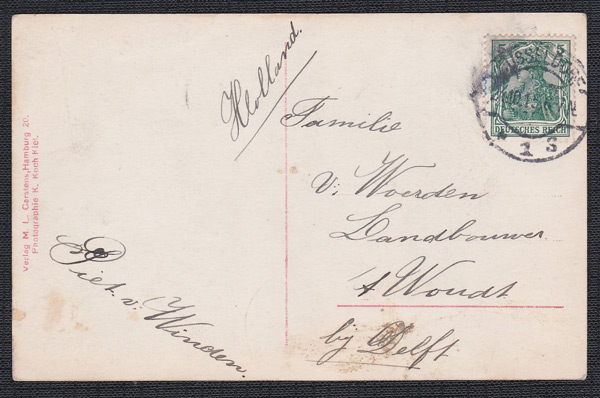 Holland.
Familie
v: Woerden
Landbouwer
't Woudt
bij Delft
Piet v. Winden.
Verlag M. L. Carstens, Hamburg 20.
Photographie K. Koch Kiel.
DÜSSELDORF
1 3
DEUTSCHES REICH